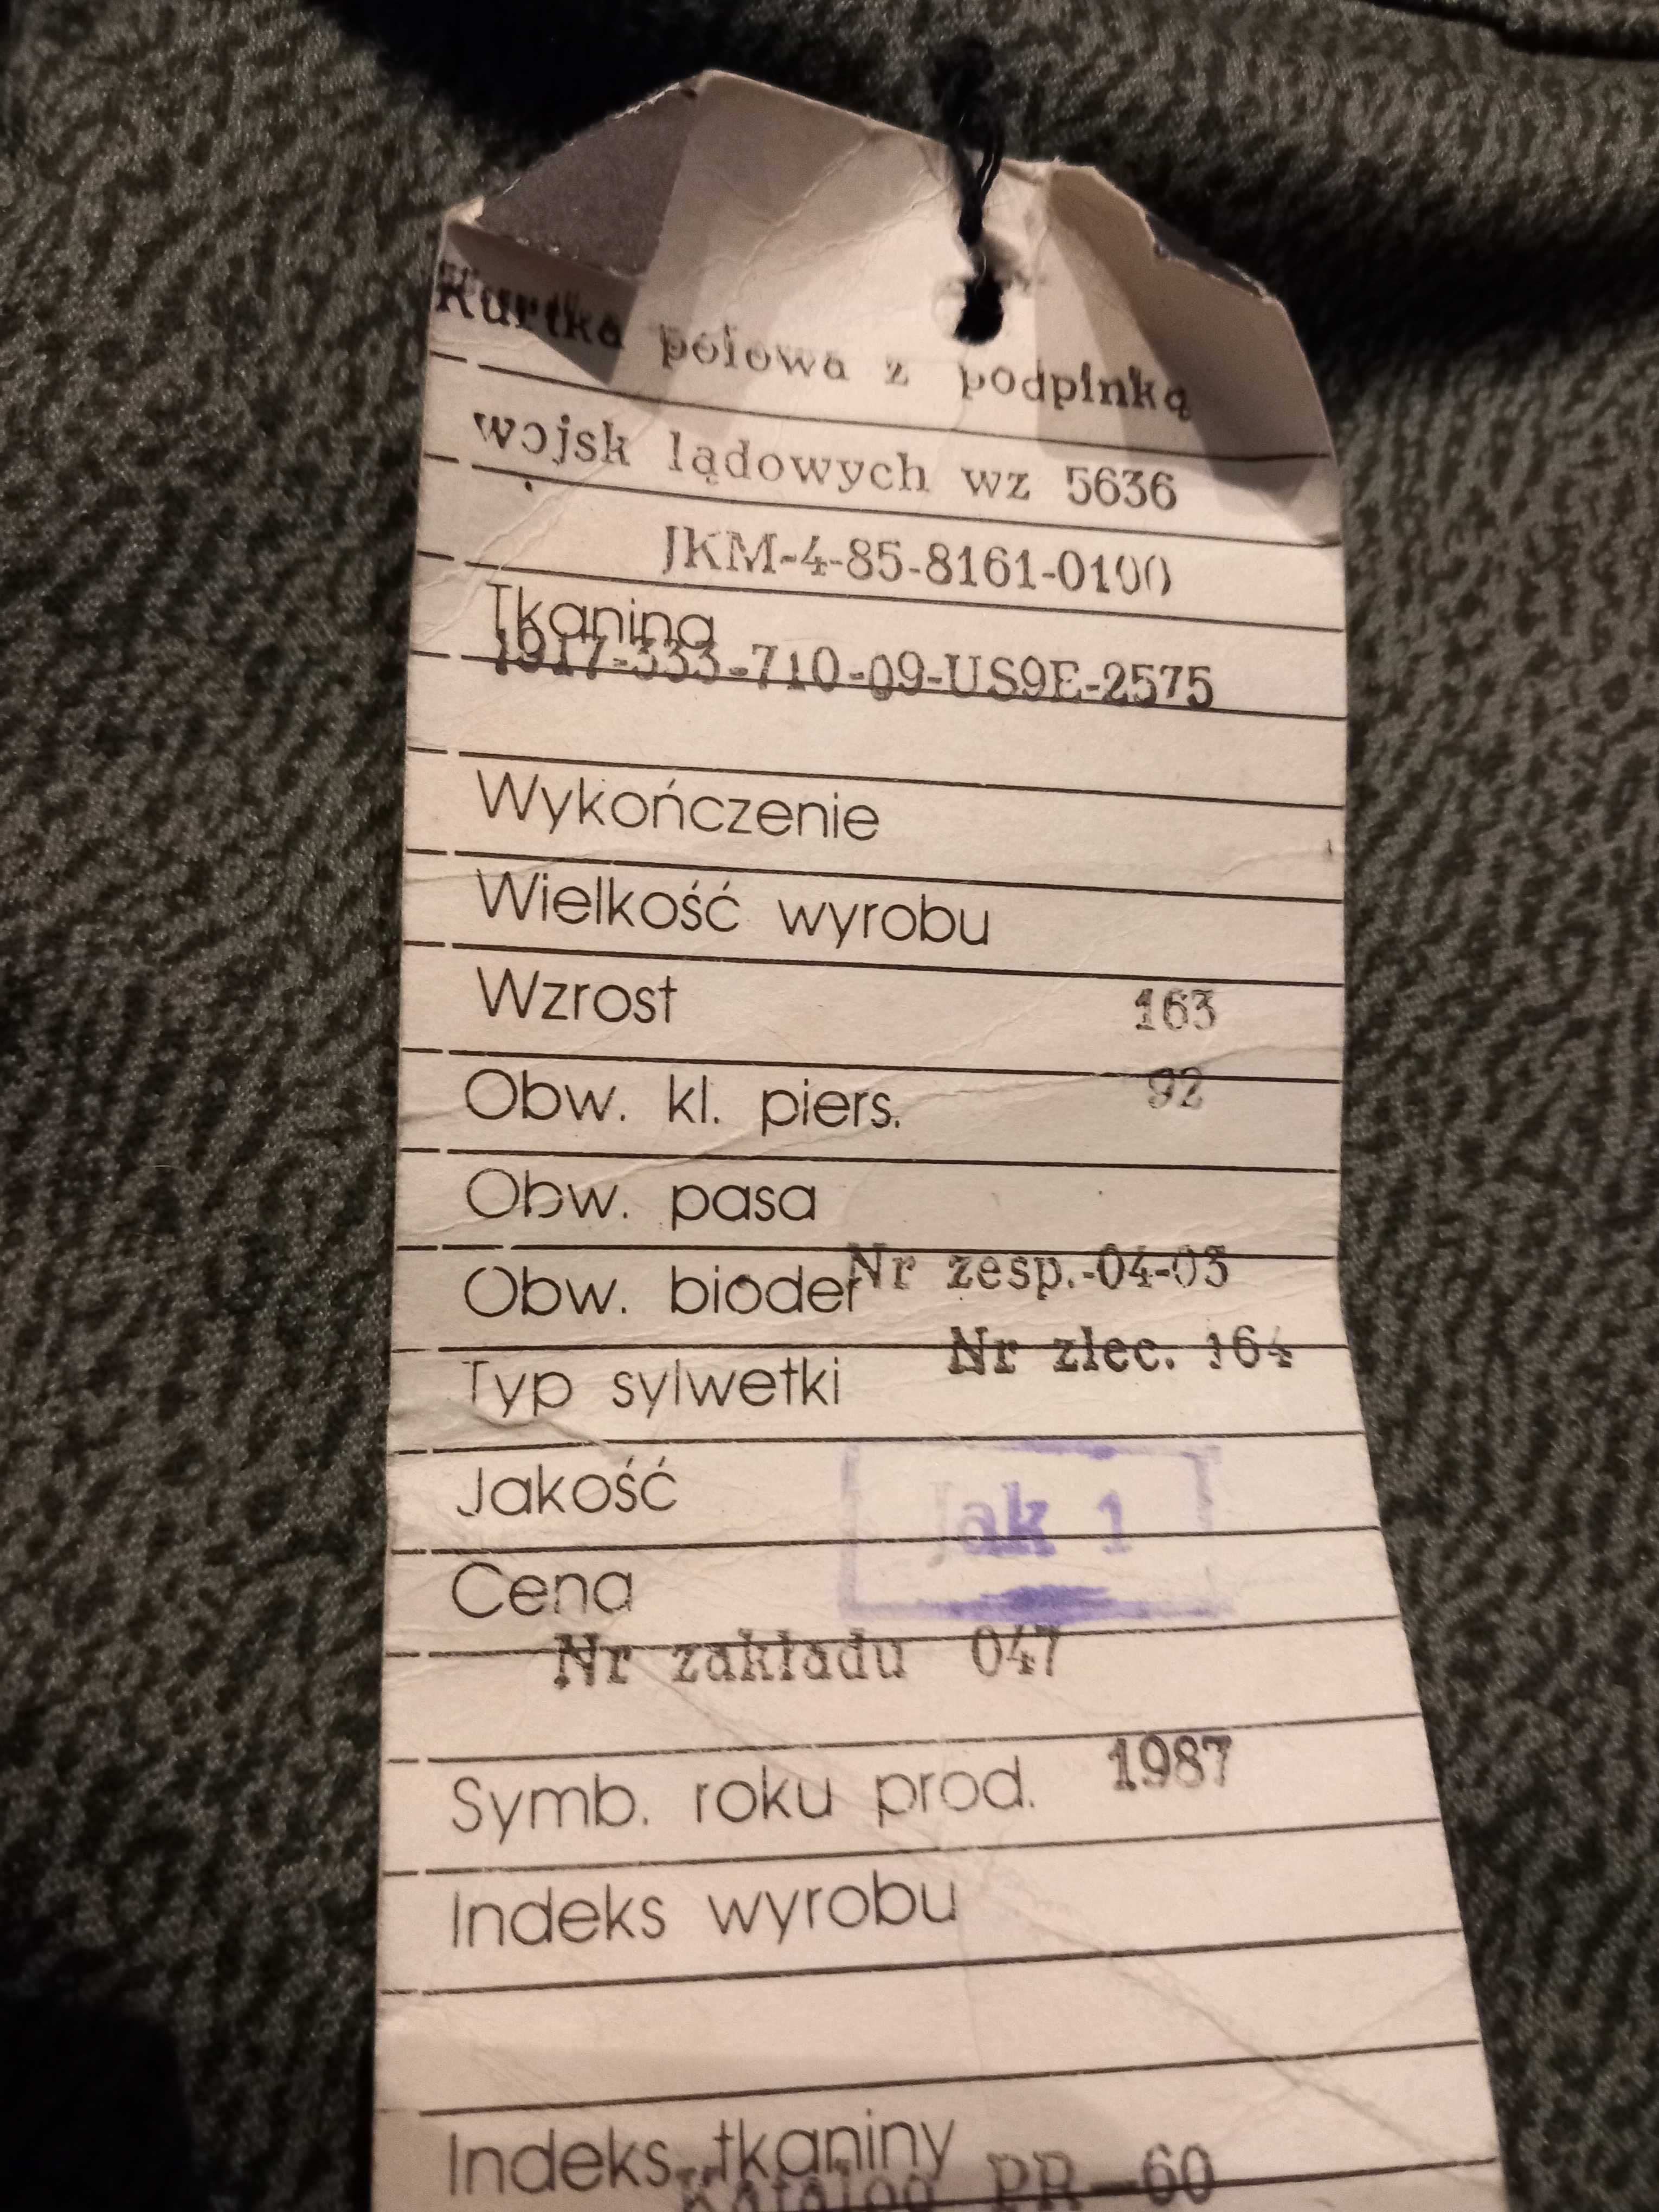 Kurtka polowa z podpinką
wojsk lądowych wz 5636
JKM-4-85-8161-0100
Tkanina
1917-333-710-09-US9E-2575
Wykończenie
Wielkość wyrobu
Wzrost 163
Obw. kl. piers. 92
Obw. pasa
Obw. bioder Nr zesp.-04-03
Typ sylwetki Nr zlec. 164
Jakość Jak 1
Cena
Nr zakładu 047
Symb. roku prod. 1987
Indeks wyrobu
Indeks tkaniny
Katalog PR-60